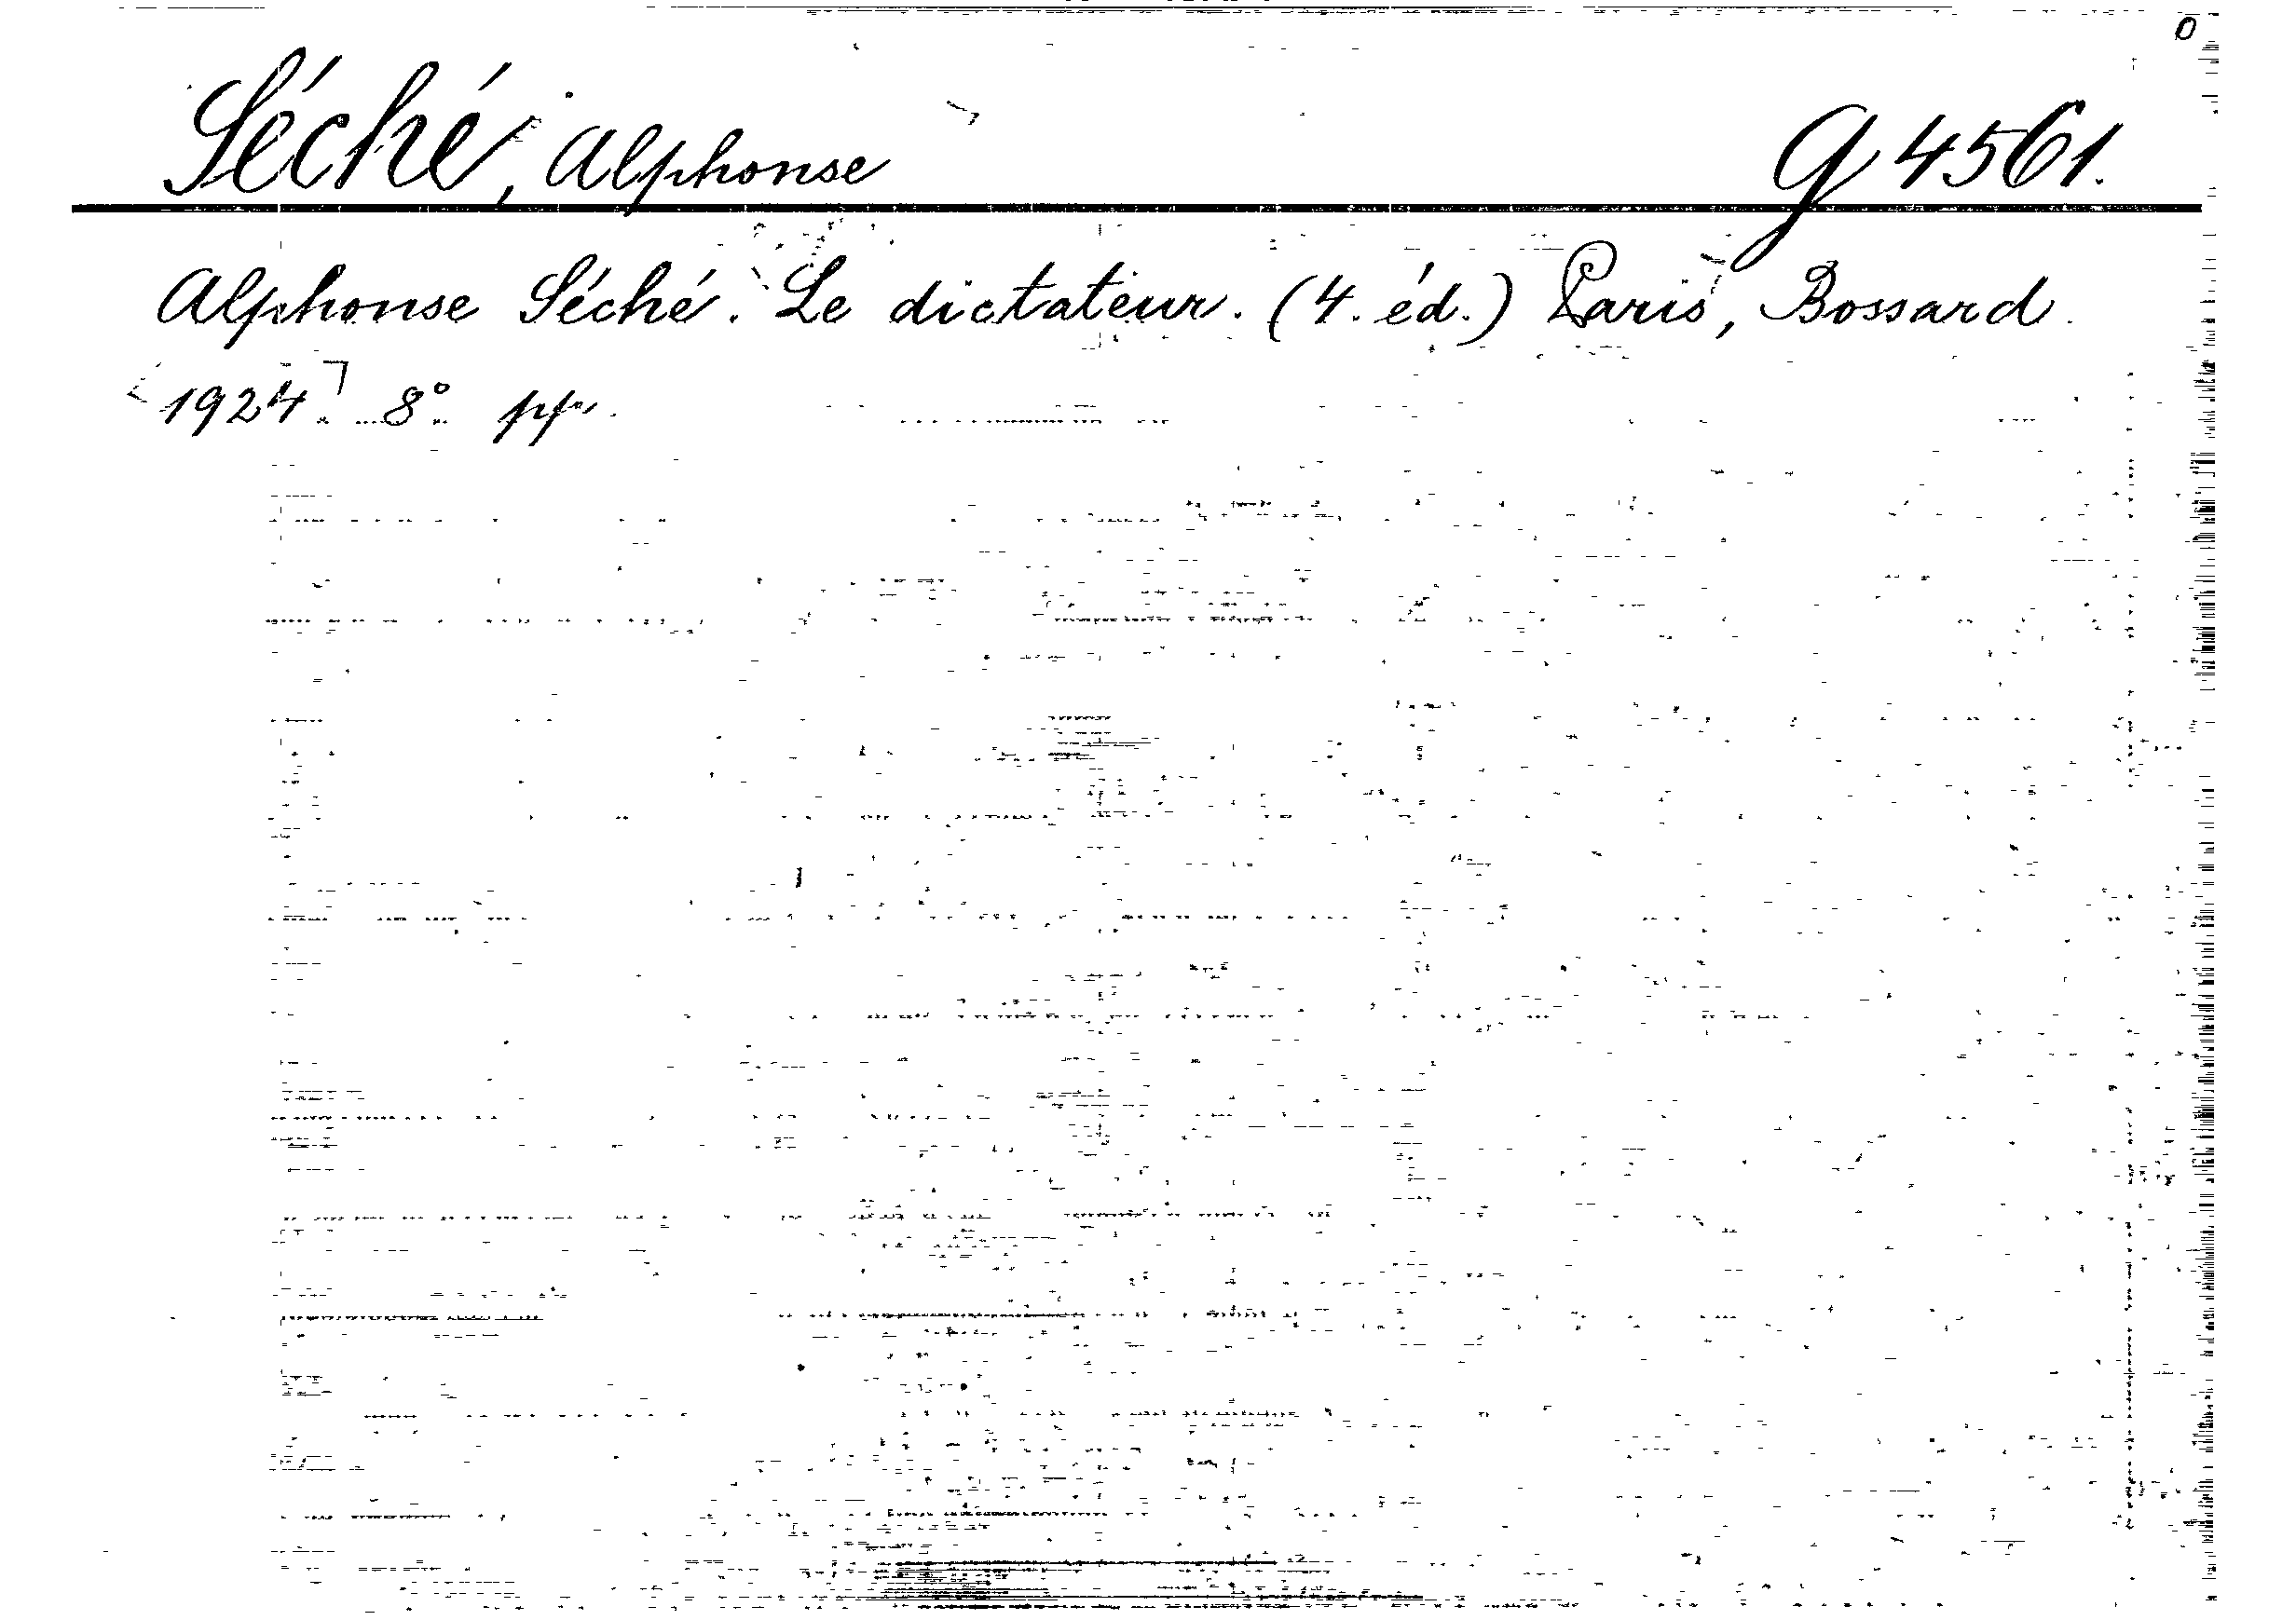 Séché, Alphonse g 4561.
Alphonse Séché. Le dictateur. (4. éd.) Paris, Bossard.
[1924]. 8°. pp.